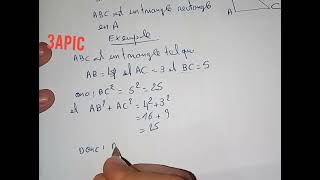 ABC est un triangle rectangle
en A
A
3APIC
Exemple
ABC est un triangle tel que
AB = 4 et AC = 3 et BC = 5
ona: BC² = 5² = 25
et AB² + AC² = 4² + 3²
= 16 + 9
= 25
Donc: